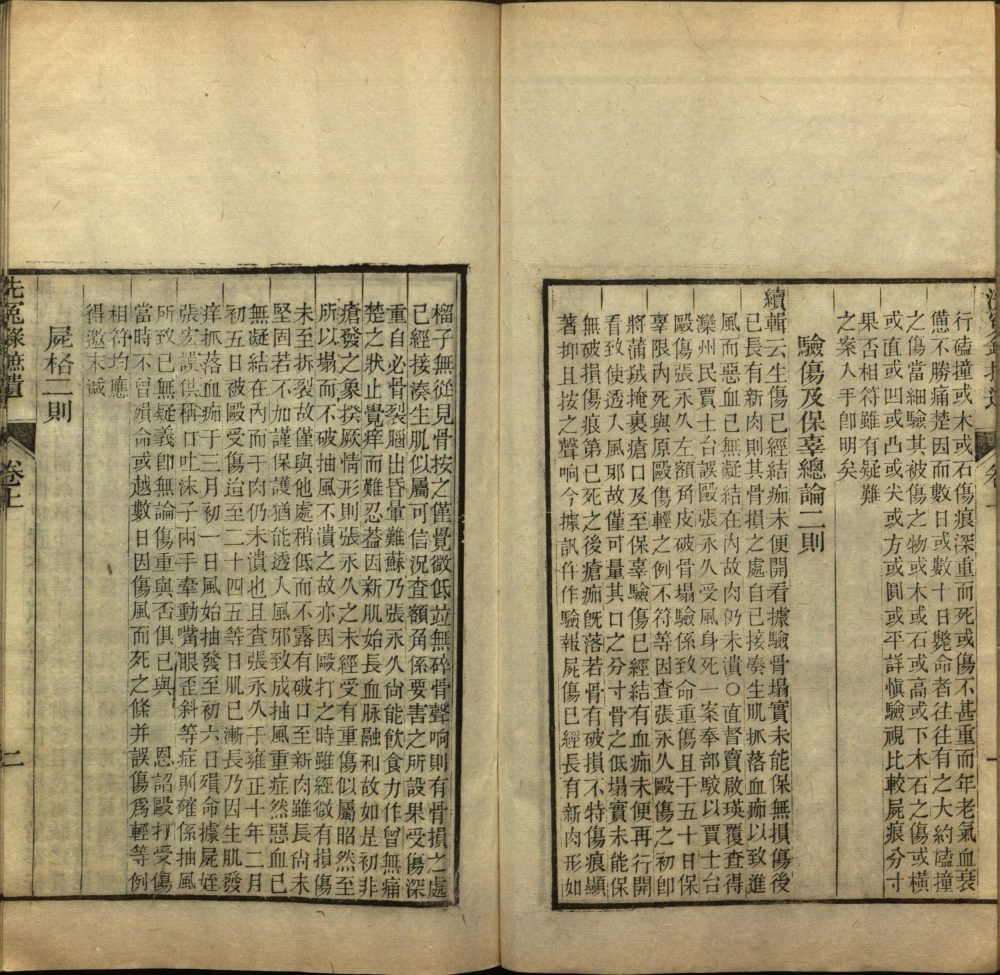 行磕撞或木或石傷痕深重而死或傷不甚重而年老氣血衰
憊不勝痛楚因而數日或數十日斃命者往往有之大約磕撞
之傷當細驗其被傷之物或木或石或高或下木石之傷或橫
或直或凹或凸或尖或方或圓或平詳慎驗視比較屍痕分寸
果否相符雖有疑難
之案入手卽明矣
驗傷及保辜總論二則
續輯云生傷已經結痂未便開看據驗骨塌實未能保無損傷後
已長有新肉則其骨損之處自已接湊生肌抓落血痂以致進
風而惡血已無凝結在內故肉仍未潰○直督竇啟瑛覆查得
灤州民賈士台誤毆張永久受風身死一案奉部駁以賈士台
毆傷張永久左額角皮破骨塌驗係致命重傷且于五十日保
辜限內死與原毆傷輕之例不符等因查張永久毆傷之初卽
將蒲羢掩裹瘡口及至保辜驗傷已經結有血痂未便再行開
看致使透入風邪故僅可量其口之分寸骨之低塌實未能保
無破損傷痕第已死之後瘡痂旣落若骨有破損不特傷痕顯
著抑且按之聲响今據訊仵作驗報屍傷已經長有新肉形如
榴子無從見骨按之僅覺微低並無碎骨聲响則有骨損之處
已經接湊生肌似屬可信況查額角係要害之所設果受傷深
重自必骨裂腦出昏暈難蘇乃張永久尚能飲食力作曾無痛
楚之狀止覺痒而難忍葢因新肌始長血脉融和故如是初非
瘡發之象揆厥情形則張永久之未經受有重傷似屬昭然至
所以塌而不破抽風不潰之故亦因毆打之時雖經微有損傷
未至拆裂故僅與他處稍低而不露有破口至新肉雖長尚未
堅固若不加謹保護猶能透入風邪致成抽風重症然惡血已
無凝結在內而于肉仍未潰也且查張永久于雍正十年二月
初五日破毆受傷迨至二十四五等日肌已漸長乃因生肌發
痒抓落血痂于三月初一日風始抽發至初六日殞命據屍姪
張宏謨供稱口吐沫子兩手牽動嘴眼歪斜等症則確係抽風
所致已無疑義卽無論傷重與否俱已與　恩詔毆打受傷
當時不曾殞命或越數日因傷風而死之條并誤傷爲輕等例
相符均應
得邀末減
屍格二則
洗冤錄摭遺
卷上
二